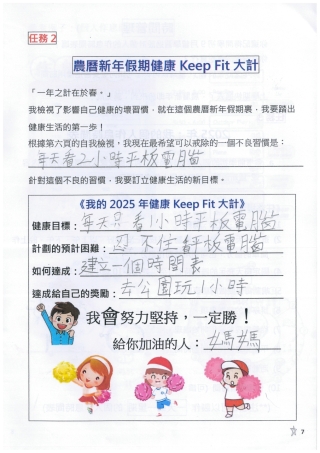 任務2
農曆新年假期健康 Keep Fit 大計
「一年之計在於春。」
我檢視了影響自己健康的壞習慣，就在這個農曆新年假期裏，我要踏出
健康生活的第一步！
根據第六頁的自我檢視，我現在最希望可以戒除的一個不良習慣是：
每天看2小時平板電腦
針對這個不良的習慣，我要訂立健康生活的新目標。
《我的 2025 年健康 Keep Fit 大計》
健康目標：每天只看1小時平板電腦
計劃的預計困難：忍不住看平板電腦
如何達成：建立一個時間表
達成給自己的獎勵：去公園玩1小時
我會努力堅持，一定勝！
給你加油的人：媽媽
7